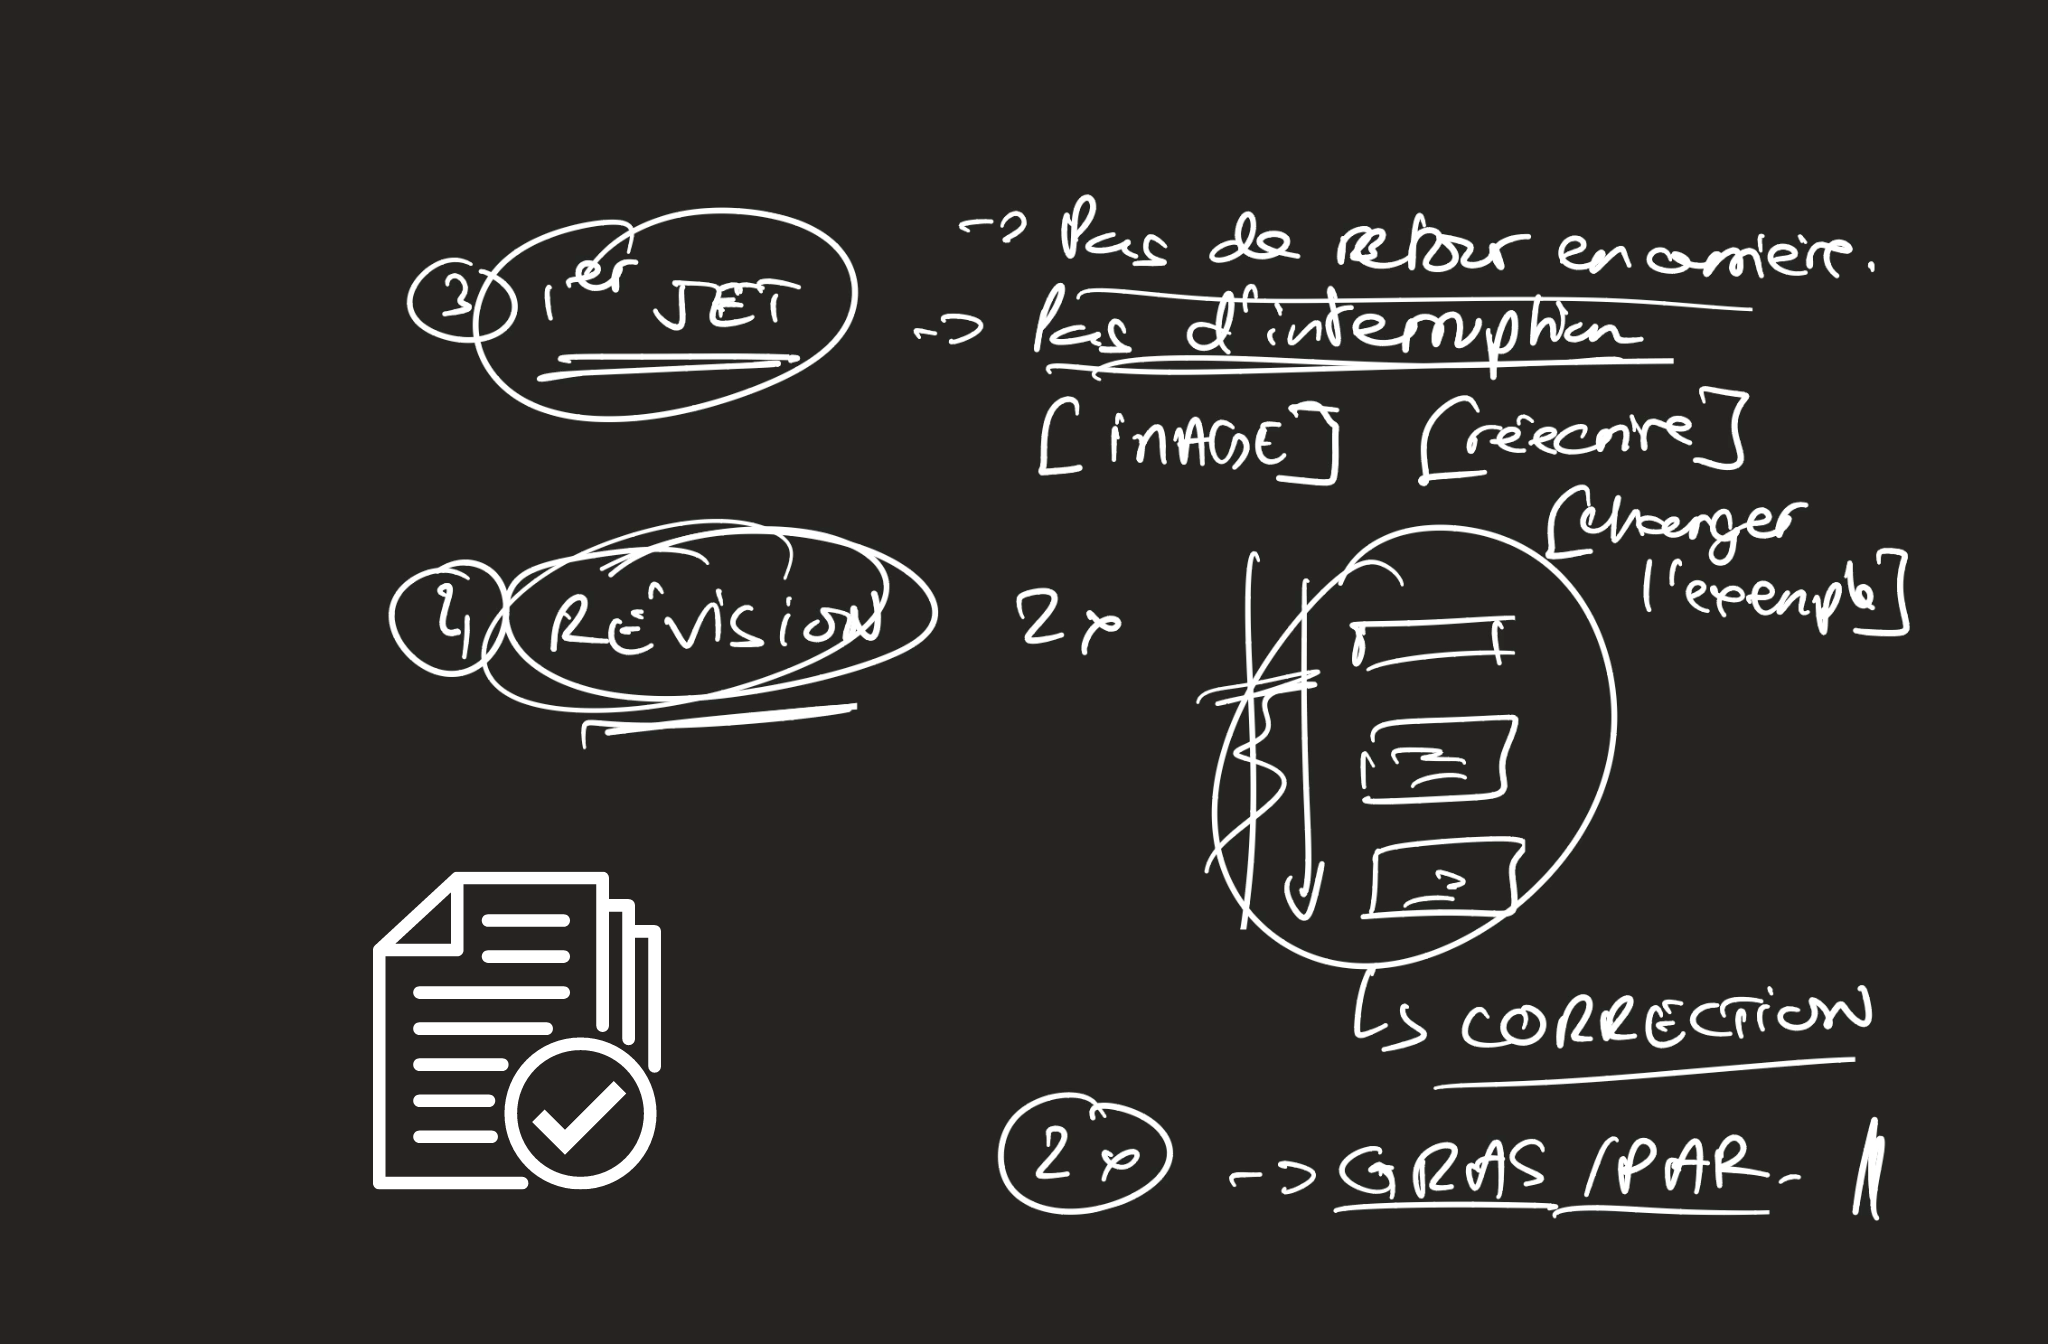 ③ 1er JET
-> Pas de retour en arrière.
-> Pas d'interruption
[iMAGE] [réécrire]
[changer
l'exemple]
④ RÉViSiON 2x
↳ CORRECTiON
2x -> GRAS / PAR -